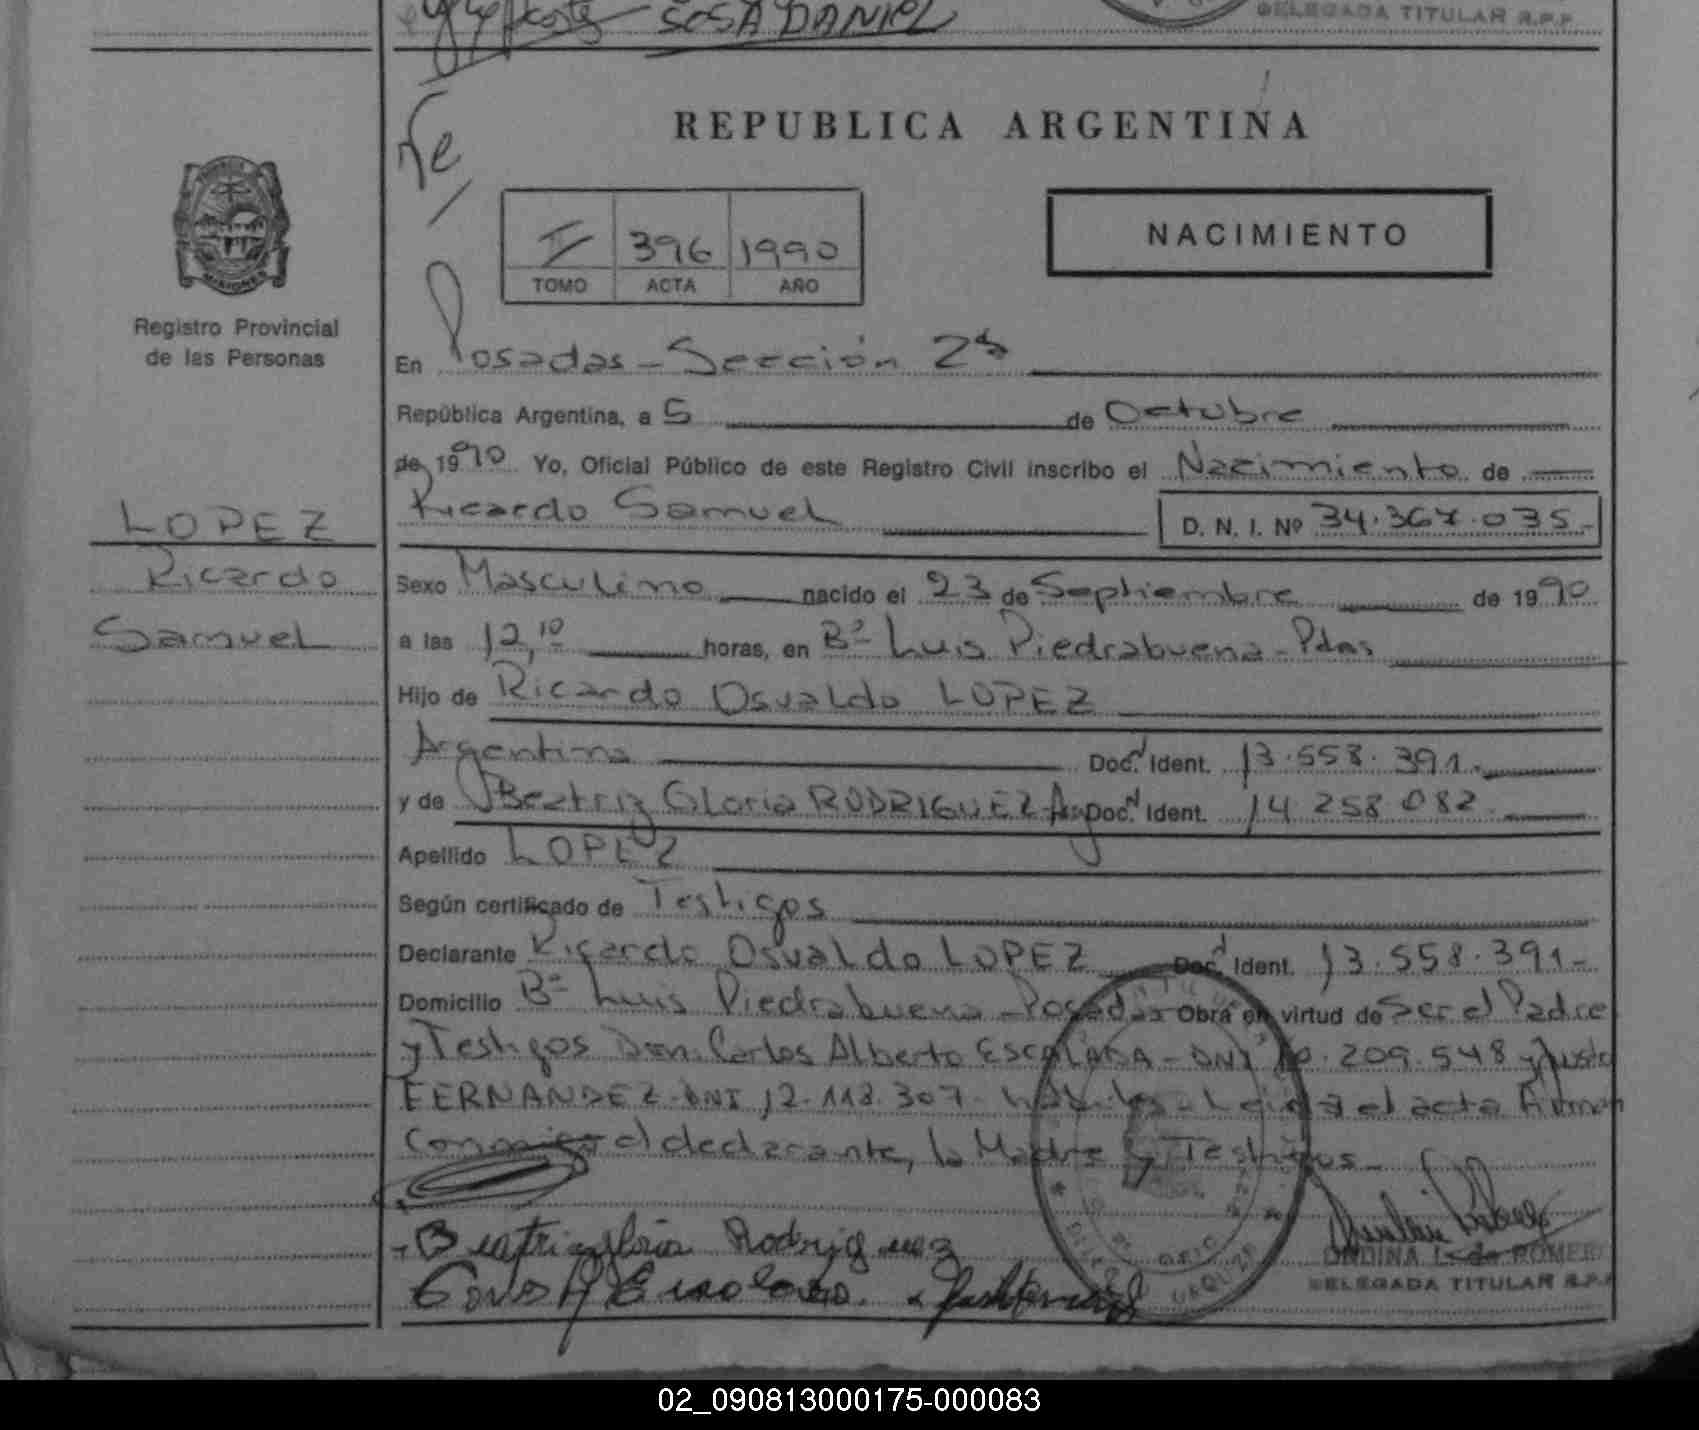 SOSA DANIEL
DELEGADA TITULAR R.P.P.
REPUBLICA ARGENTINA
NACIMIENTO
I 396 1990
TOMO ACTA AÑO
Registro Provincial
de las Personas
En Posadas - Sección 2ª
República Argentina, a 5 de Octubre
de 1990 Yo, Oficial Público de este Registro Civil inscribo el Nacimiento de
Ricardo Samuel D. N. I. Nº 34.367.035.-
LOPEZ
Ricardo
Samuel
Sexo Masculino nacido el 23 de Septiembre de 1990
a las 12,10 horas, en Bº Luis Piedrabuena - Pdas
Hijo de Ricardo Osvaldo LOPEZ
Argentino Doc. Ident. 13.558.391.-
y de Beatriz Gloria RODRIGUEZ - Arg Doc. Ident. 14.258.082.
Apellido LOPEZ
Según certificado de Testigos
Declarante Ricardo Osvaldo LOPEZ Doc. Ident. 13.558.391-
Domicilio Bº Luis Piedrabuena - Posadas Obra en virtud de Ser el Padre
y Testigos Don Carlos Alberto ESCALADA - DNI 10.209.548 y Justo
FERNANDEZ - DNI 12.118.307 - hábiles - Leída el acta firman
Conmigo el declarante, la Madre y Testigos -
Beatriz Gloria Rodriguez
ONDINA L. de ROMERO
DELEGADA TITULAR R.P.P.
02_090813000175-000083